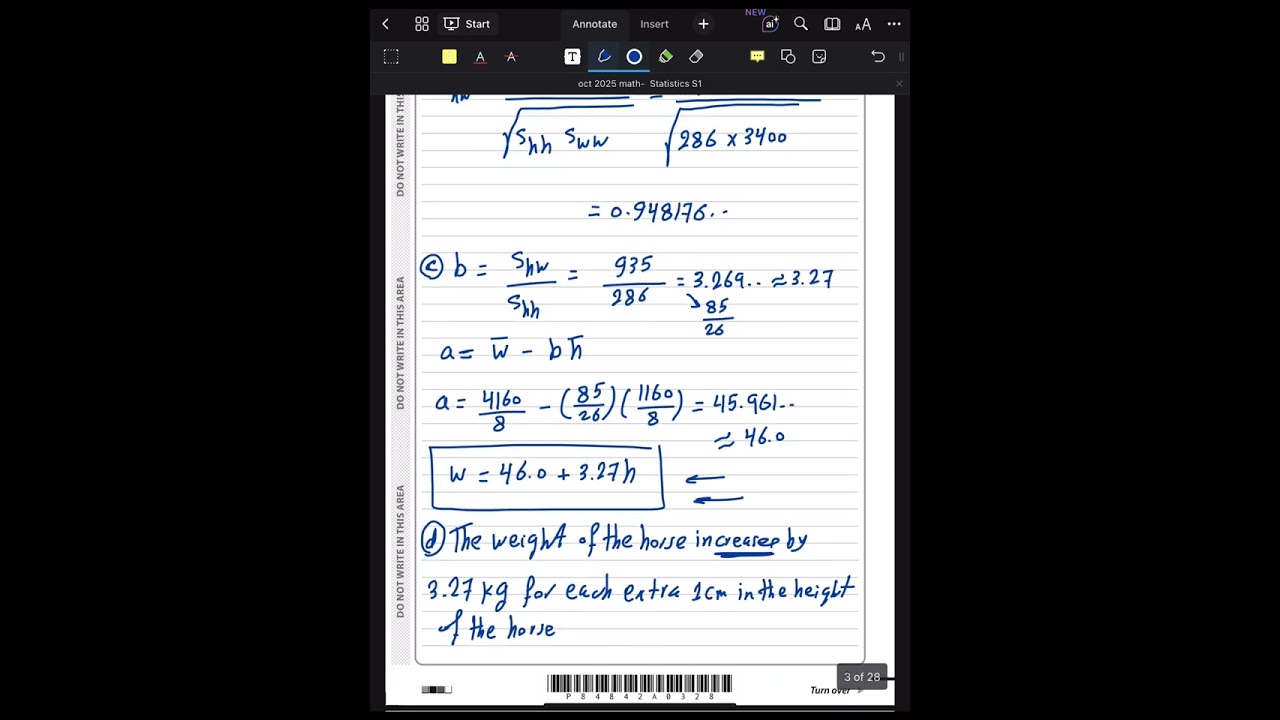 Start
Annotate
Insert
NEW
ai
AA
T
A
A
oct 2025 math- Statistics S1
DO NOT WRITE IN THIS AREA
DO NOT WRITE IN THIS AREA
DO NOT WRITE IN THIS
hw =
√Shh Sww √286 × 3400
= 0.948176..
(c) b = Shw/Shh = 935/286 = 3.269.. ≈ 3.27
85/26
a = w̄ - bh̄
a = 4160/8 - (85/26)(1160/8) = 45.961..
≈ 46.0
W = 46.0 + 3.27h
(d) The weight of the horse increases by
3.27 kg for each extra 1cm in the height
of the horse
3 of 28
P84842A0328
Turn over